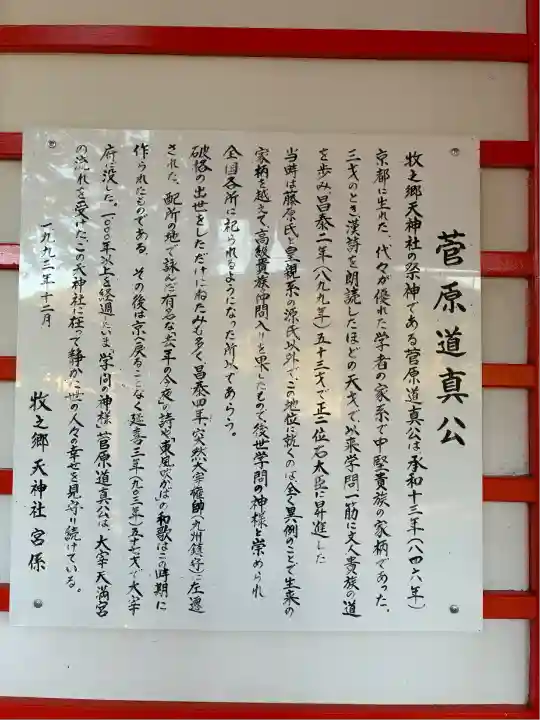 菅原道真公
牧之郷天神社の祭神である菅原道真公は承和十三年(八四六年)
京都に生れた、代々が優れた学者の家系で中堅貴族の家柄であった。
三才のとき漢詩を朗読したほどの天才で以来学問一筋に文人貴族の道
を歩み昌泰二年(八九九年)五十三才で正二位右大臣に昇進した
当時は藤原氏と皇親系の源氏以外でこの地位に就くのは全く異例のことで生来の
家柄を越えて高級貴族の仲間入りを果したもので後世学問の神様と崇められ
全国各所に祀られるようになった所以であろう。
破格の出世をしただけにねたみも多く、昌泰四年、突然大宰権帥(九州鎮守)に左遷
された、配所の地で詠んだ有名な「去年の今夜」の詩や「東風吹かば」の和歌はこの時期に
作られたものである。その後は京へ戻ることなく延喜三年(九〇三年)五十七才で大宰
府に没した。一〇〇〇年以上を経過したいま、学問の神様、菅原道真公は、太宰天満宮
の流れを受けたこの天神社に在って静かに世の人々の幸せを見守り続けている。
一九九二年十二月
牧之郷天神社 宮係